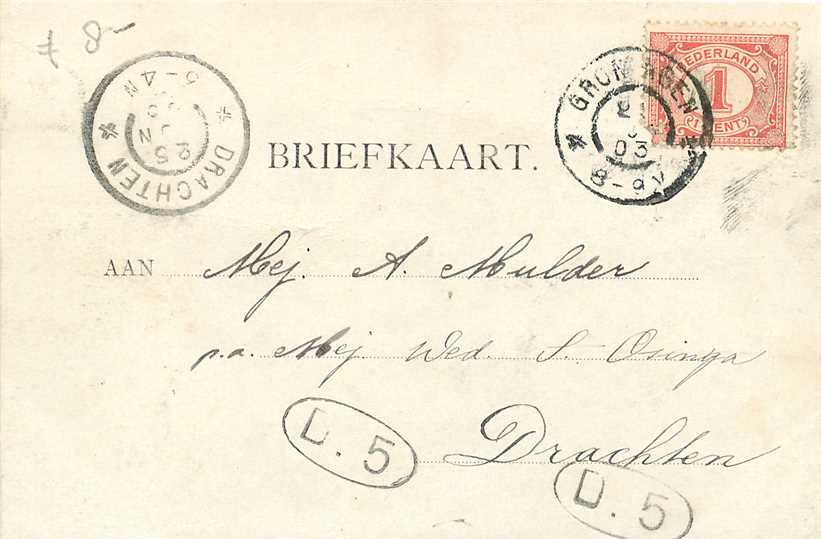 f 8-
NEDERLAND
1
1 CENT
GRONINGEN
03
8-9V
DRACHTEN
25
JN
03
3-4N
BRIEFKAART.
AAN Mej. A. Mulder
p.a. Mej Wed. S. Osinga
Drachten
D. 5
D. 5